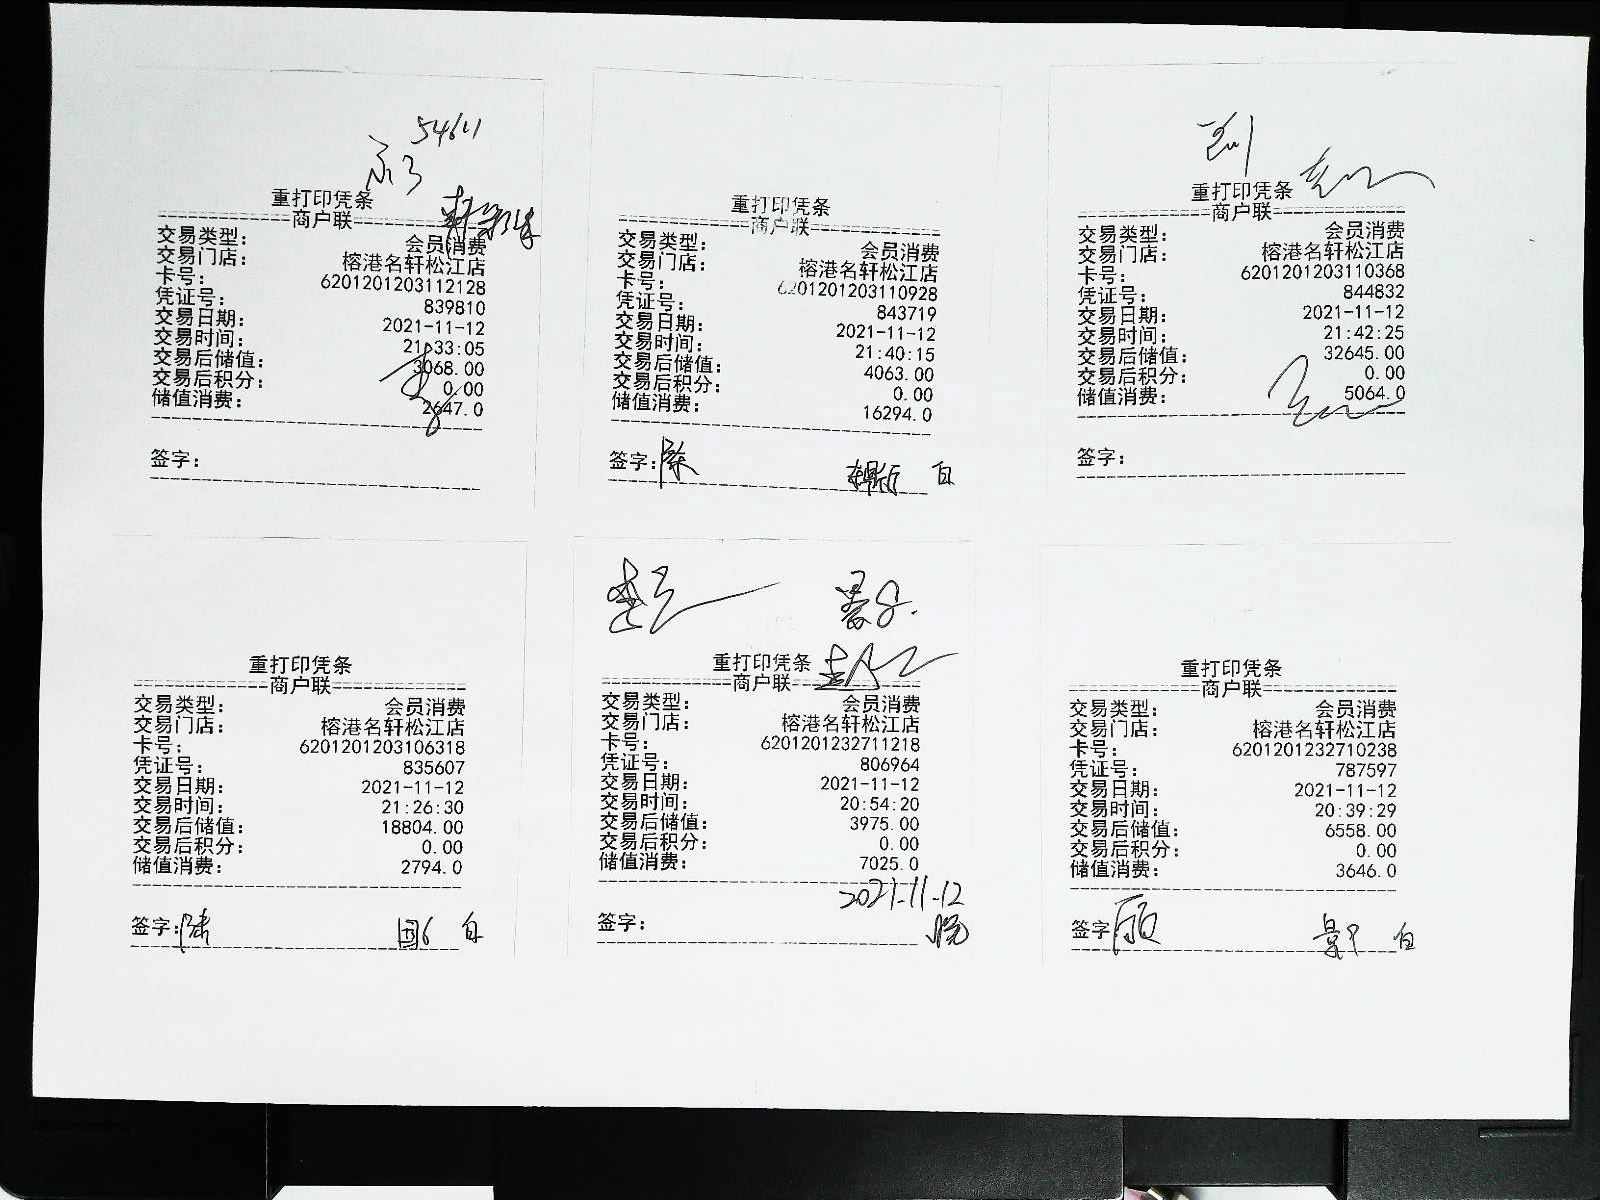 54611
重打印凭条
商户联
交易类型: 会员消费
交易门店: 榕港名轩松江店
卡号: 6201201203112128
凭证号: 839810
交易日期: 2021-11-12
交易时间: 21:33:05
交易后储值: 3068.00
交易后积分: 0.00
储值消费: 2647.0
签字:
重打印凭条
商户联
交易类型: 会员消费
交易门店: 榕港名轩松江店
卡号: 6201201203110928
凭证号: 843719
交易日期: 2021-11-12
交易时间: 21:40:15
交易后储值: 4063.00
交易后积分: 0.00
储值消费: 16294.0
签字:
重打印凭条
商户联
交易类型: 会员消费
交易门店: 榕港名轩松江店
卡号: 6201201203110368
凭证号: 844832
交易日期: 2021-11-12
交易时间: 21:42:25
交易后储值: 32645.00
交易后积分: 0.00
储值消费: 5064.0
签字:
重打印凭条
商户联
交易类型: 会员消费
交易门店: 榕港名轩松江店
卡号: 6201201203106318
凭证号: 835607
交易日期: 2021-11-12
交易时间: 21:26:30
交易后储值: 18804.00
交易后积分: 0.00
储值消费: 2794.0
签字:
重打印凭条
商户联
交易类型: 会员消费
交易门店: 榕港名轩松江店
卡号: 6201201232711218
凭证号: 806964
交易日期: 2021-11-12
交易时间: 20:54:20
交易后储值: 3975.00
交易后积分: 0.00
储值消费: 7025.0
2021-11-12
签字:
重打印凭条
商户联
交易类型: 会员消费
交易门店: 榕港名轩松江店
卡号: 6201201232710238
凭证号: 787597
交易日期: 2021-11-12
交易时间: 20:39:29
交易后储值: 6558.00
交易后积分: 0.00
储值消费: 3646.0
签字 顾